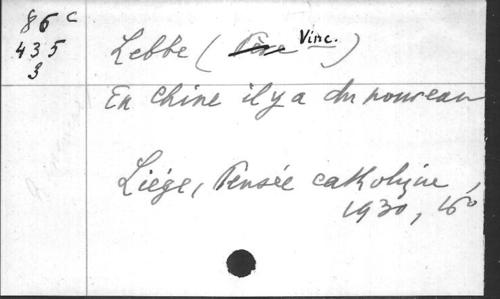 86 c
435
3
Lebbe (Père Vinc.)
En Chine il y a du nouveau
Liége, Pensée catholique,
1930, 16°